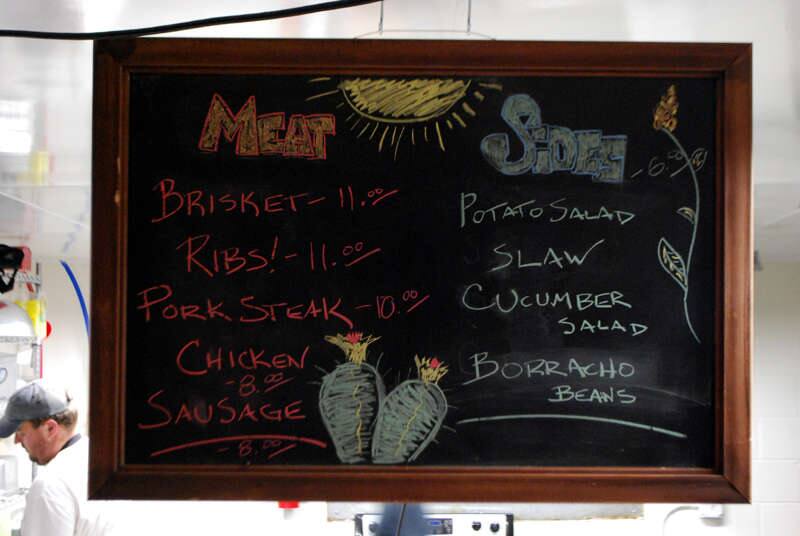 MEAT
BRISKET - 11.00
RIBS! - 11.00
PORK STEAK - 10.00
CHICKEN
- 8.00
SAUSAGE
- 8.00
SIDES
- 6.00
POTATO SALAD
SLAW
CUCUMBER
SALAD
BORRACHO
BEANS